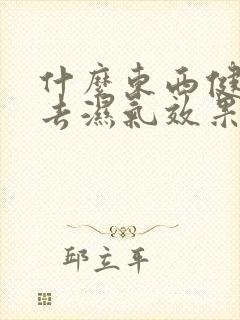 什麼東西健
去濕氣效果
邱立平